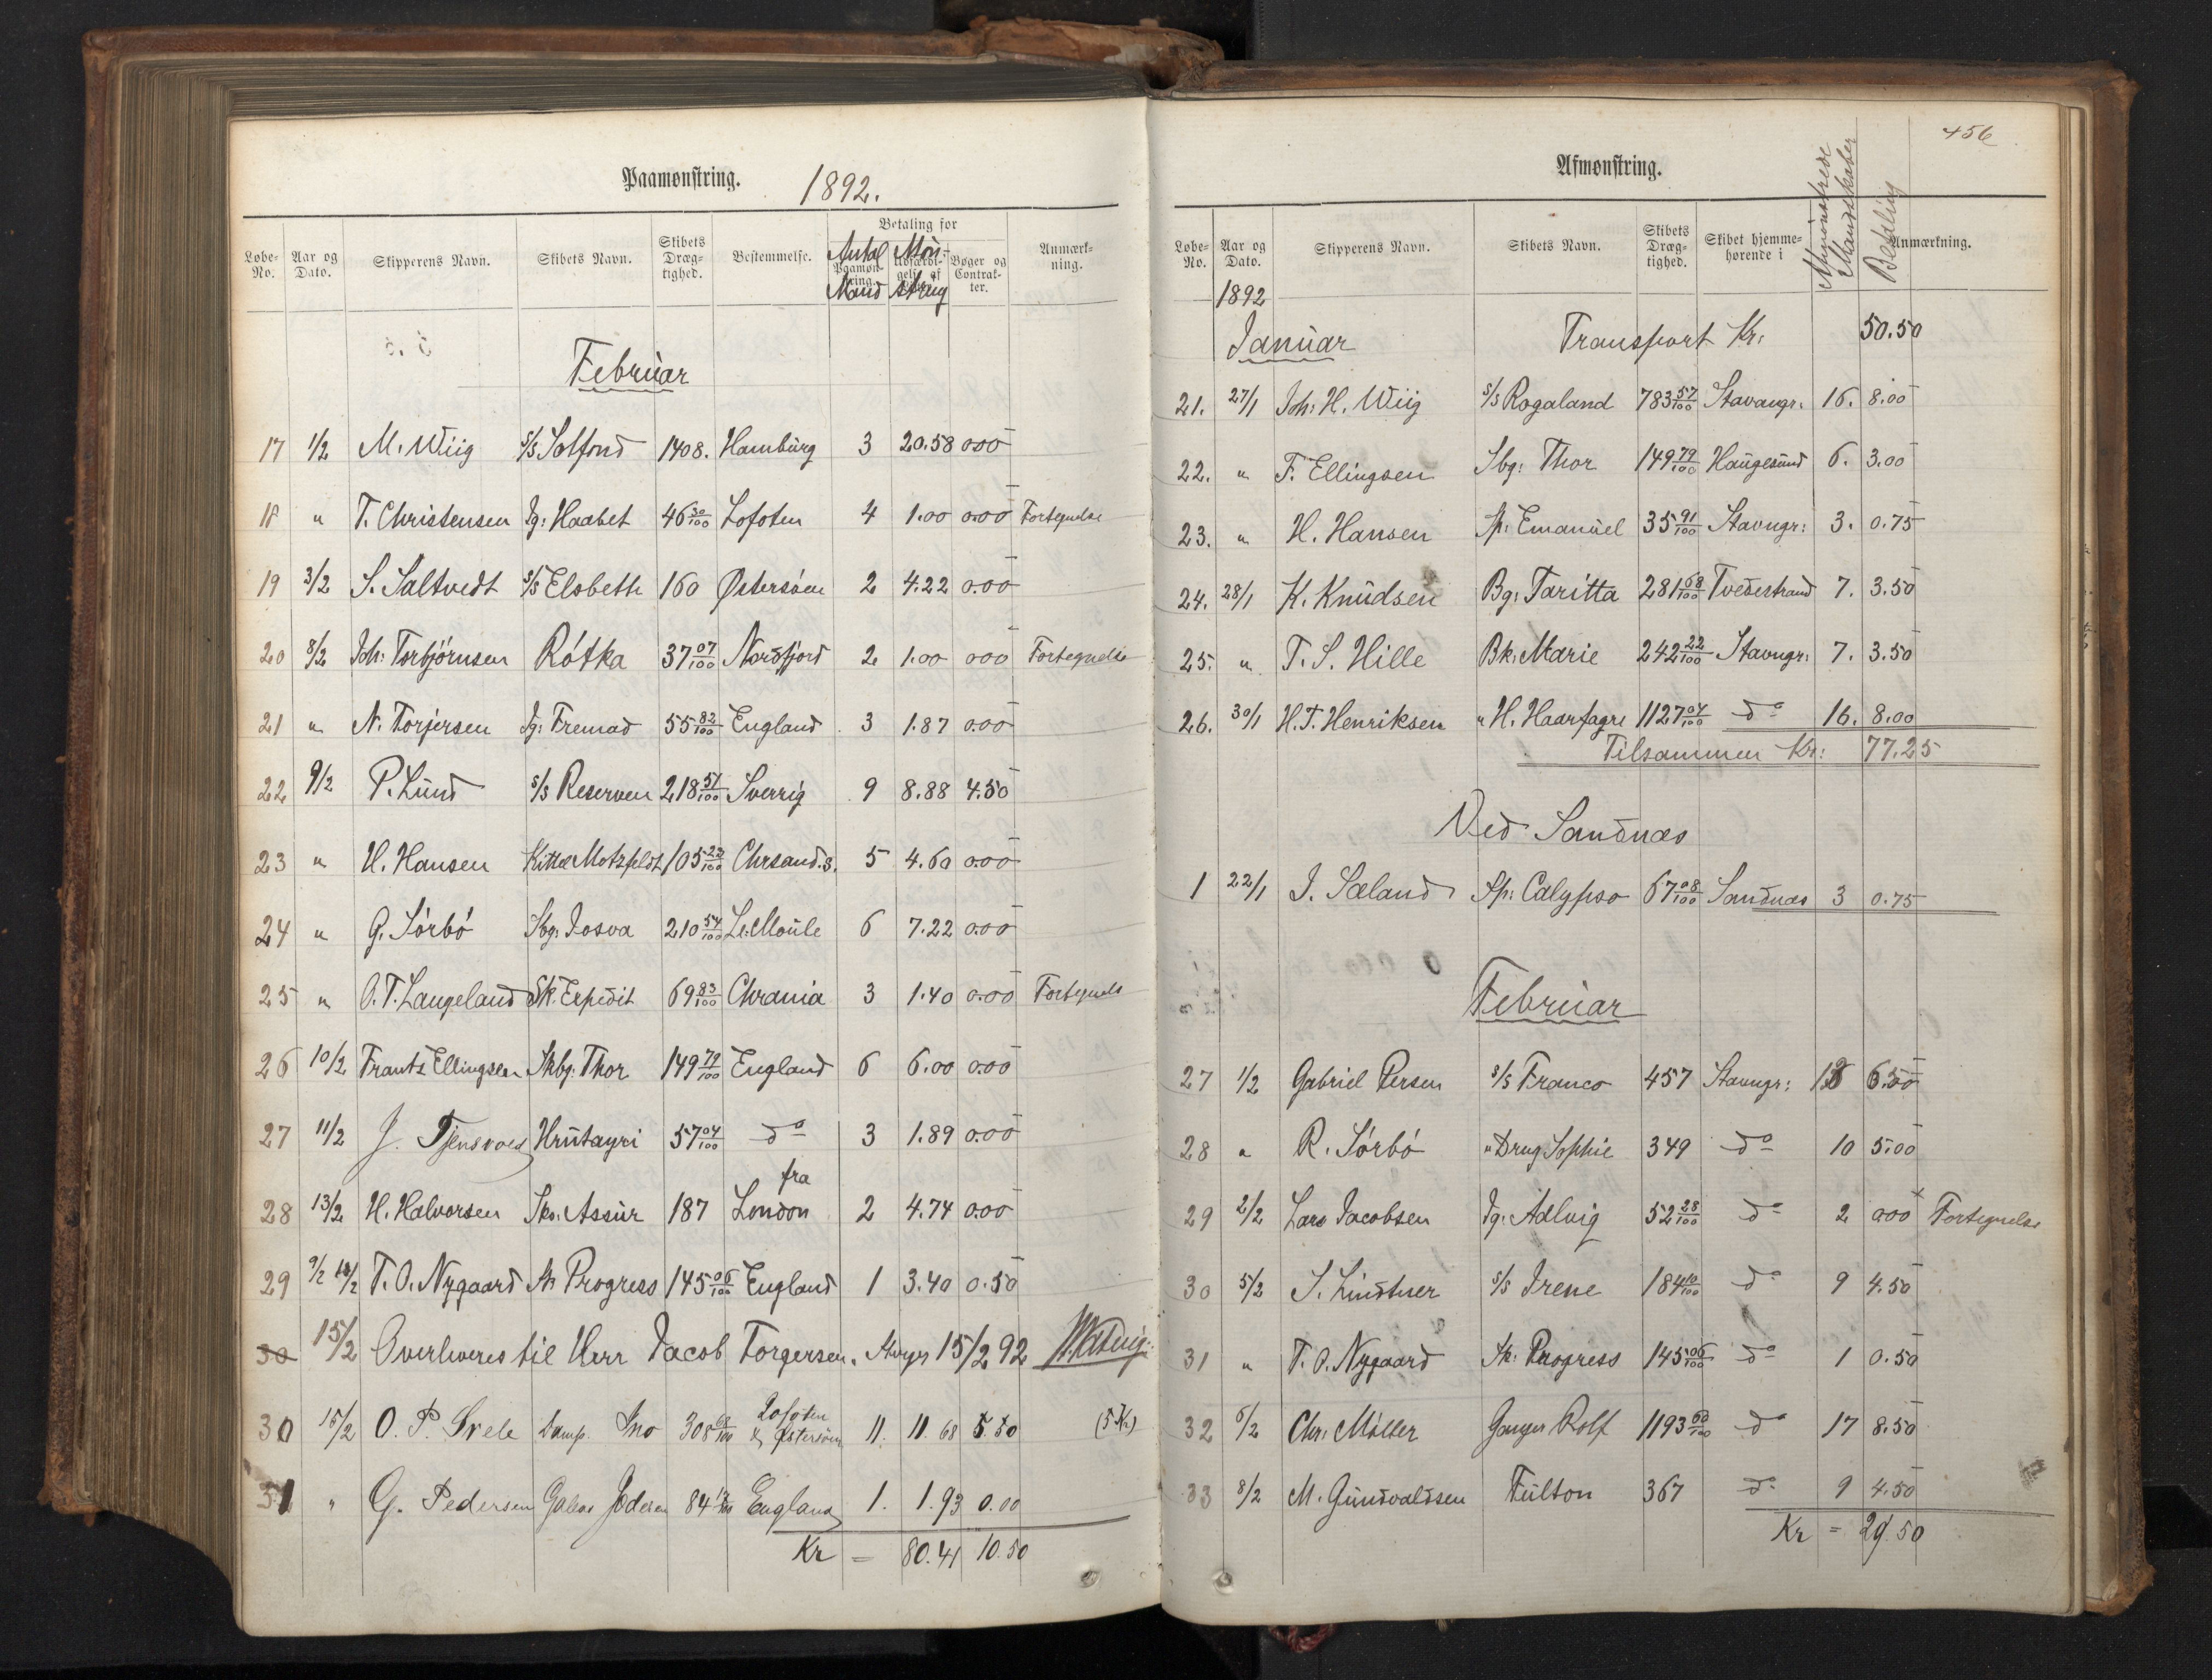 Paamønstring. 1892.
Løbe-No. Aar og Dato. Skipperens Navn. Skibets Navn. Skibets Dræg-tighed. Bestemmelse. Betaling for Antal Mand Mønstring Bøger og Contrak-ter. Anmærk-ning.
Februar
17 1/2 M. Wiig S/S Solfond 1408. Hamburg 3 20.58 0.00
18 " T. Christensen Jg: Haabet 46 30/100 Lofoten 4 1.00 0.00 Fortegnelse
19 3/2 S. Saltvedt S/S Elsbeth 160 Østersöen 2 4.22 0.00
20 8/2 Joh: Torbjörnsen Rótka 37 07/100 Nordfjord 2 1.00 000 Fortegnelse
21 " N. Torjersen Jg: Fremad 55 82/100 England 3 1.87 0.00
22 9/2 P. Lund S/S Reserven 218 51/100 Sverrig 9 8.88 4.50
23 " H. Hansen Kitta Motzfeldt 105 23/100 Chrsand.s. 5 4.60 0.00
24 " G. Sörbö Skbg: Josva 210 54/100 Le Moule 6 7.22 0.00
25 " O. T. Langeland Sk. Expedit 69 83/100 Chrania 3 1.40 0.00 Fortegnels
26 10/2 Frants Ellingsen Skbg. Thor 149 79/100 England 6 6.00 0.00
27 11/2 J. Tjensvold Hrutayri 57 04/100 do 3 1.89 0.00
28 13/2 H. Halvorsen Sko: Assur 187 fra London 2 4.74 0.00
29 9/2 T. O. Nygaard Sk Progress 145 06/100 England 1 3.40 0.50
30 15/2 Overleveres til Herr Jacob Torgersen. Stvgr 15/2 92
30 15/2 O. P. Svele Damp. Ino 308 68/100 Lofoten & Østersöen 11. 11.68 5.50 (5 K.)
31 " G. Pedersen Galeas Jederen 84 12/100 England 1. 1.93 0.00
Kr = 80.41 10.50
456
Afmønstring.
Løbe-No. Aar og Dato. Skipperens Navn. Skibets Navn. Skibets Dræg-tighed. Skibet hjemme-hørende i Afmönstrede Mandskaber Betaling Anmærkning.
1892
Januar Transport Kr: 50.50
21. 27/1 Joh: H. Wiig S/S Rogaland 783 57/100 Stavangr. 16. 8.00
22. " F. Ellingsen Sbg: Thor 149 79/100 Haugesund 6. 3.00
23. " H. Hansen Sk: Emanuel 35 91/100 Stavngr: 3. 0.75
24. 28/1 K. Knudsen Bg: Taritta 281 68/100 Tvedestrand 7. 3.50
25. " T. S. Hille Bk: Marie 242 22/100 Stavngr: 7. 3.50
26. 30/1 H. T. Henriksen " H. Haarfagre 1127 04/100 do 16. 8.00
Tilsammen Kr: 77.25
Ved Sandnæs
1 22/1 J. Sæland Sk: Calypso 67 08/100 Sandnæs 3 0.75
Februar
27 1/2 Gabriel Persen S/S Franco 457 Stavngr: 13 6.50
28 " R. Sörbö " Drng Sophie 349 do 10 5.00
29 2/2 Lars Jacobsen Jg: Adlvig 52 28/100 do 2 0.00 Fortegnelse
30 5/2 S. Lindtner S/S Irene 184 10/100 do 9 4.50
31 " T. O. Nygaard Sk: Progress 145 06/100 do 1 0.50
32 6/2 Chr: Möller Ganger Rolf 1193 60/100 do 17 8.50
33 8/2 M. Gundvaldsen Fulton 367 do 9 4.50
Kr = 29.50